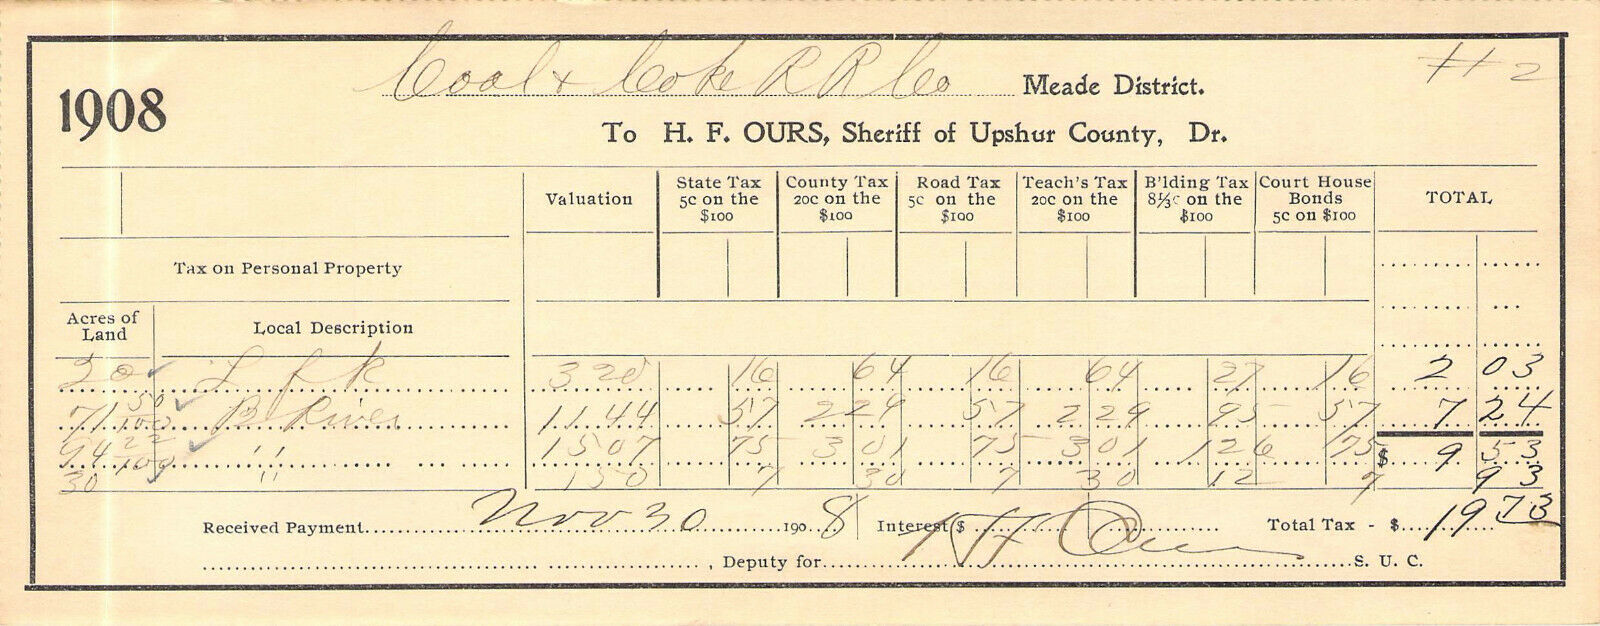 Coal & Coke R R Co Meade District. # 2
1908
To H. F. OURS, Sheriff of Upshur County, Dr.
Valuation State Tax 5c on the $100 County Tax 20c on the $100 Road Tax 5c on the $100 Teach's Tax 20c on the $100 B'lding Tax 8⅓c on the $100 Court House Bonds 5c on $100 TOTAL
Tax on Personal Property
Acres of Land Local Description
20 L f k 320 16 64 16 64 27 16 2 03
71 50/100 B River 1144 57 2 29 57 2 29 95 57 7 24
94 22/100 " 1507 75 3 01 75 3 01 1 26 75 $ 9 53
30 " 150 7 30 7 30 12 7 93
Received Payment Nov 30 1908 Interest $ Total Tax - $ 19 73
H F Ours
, Deputy for S. U. C.